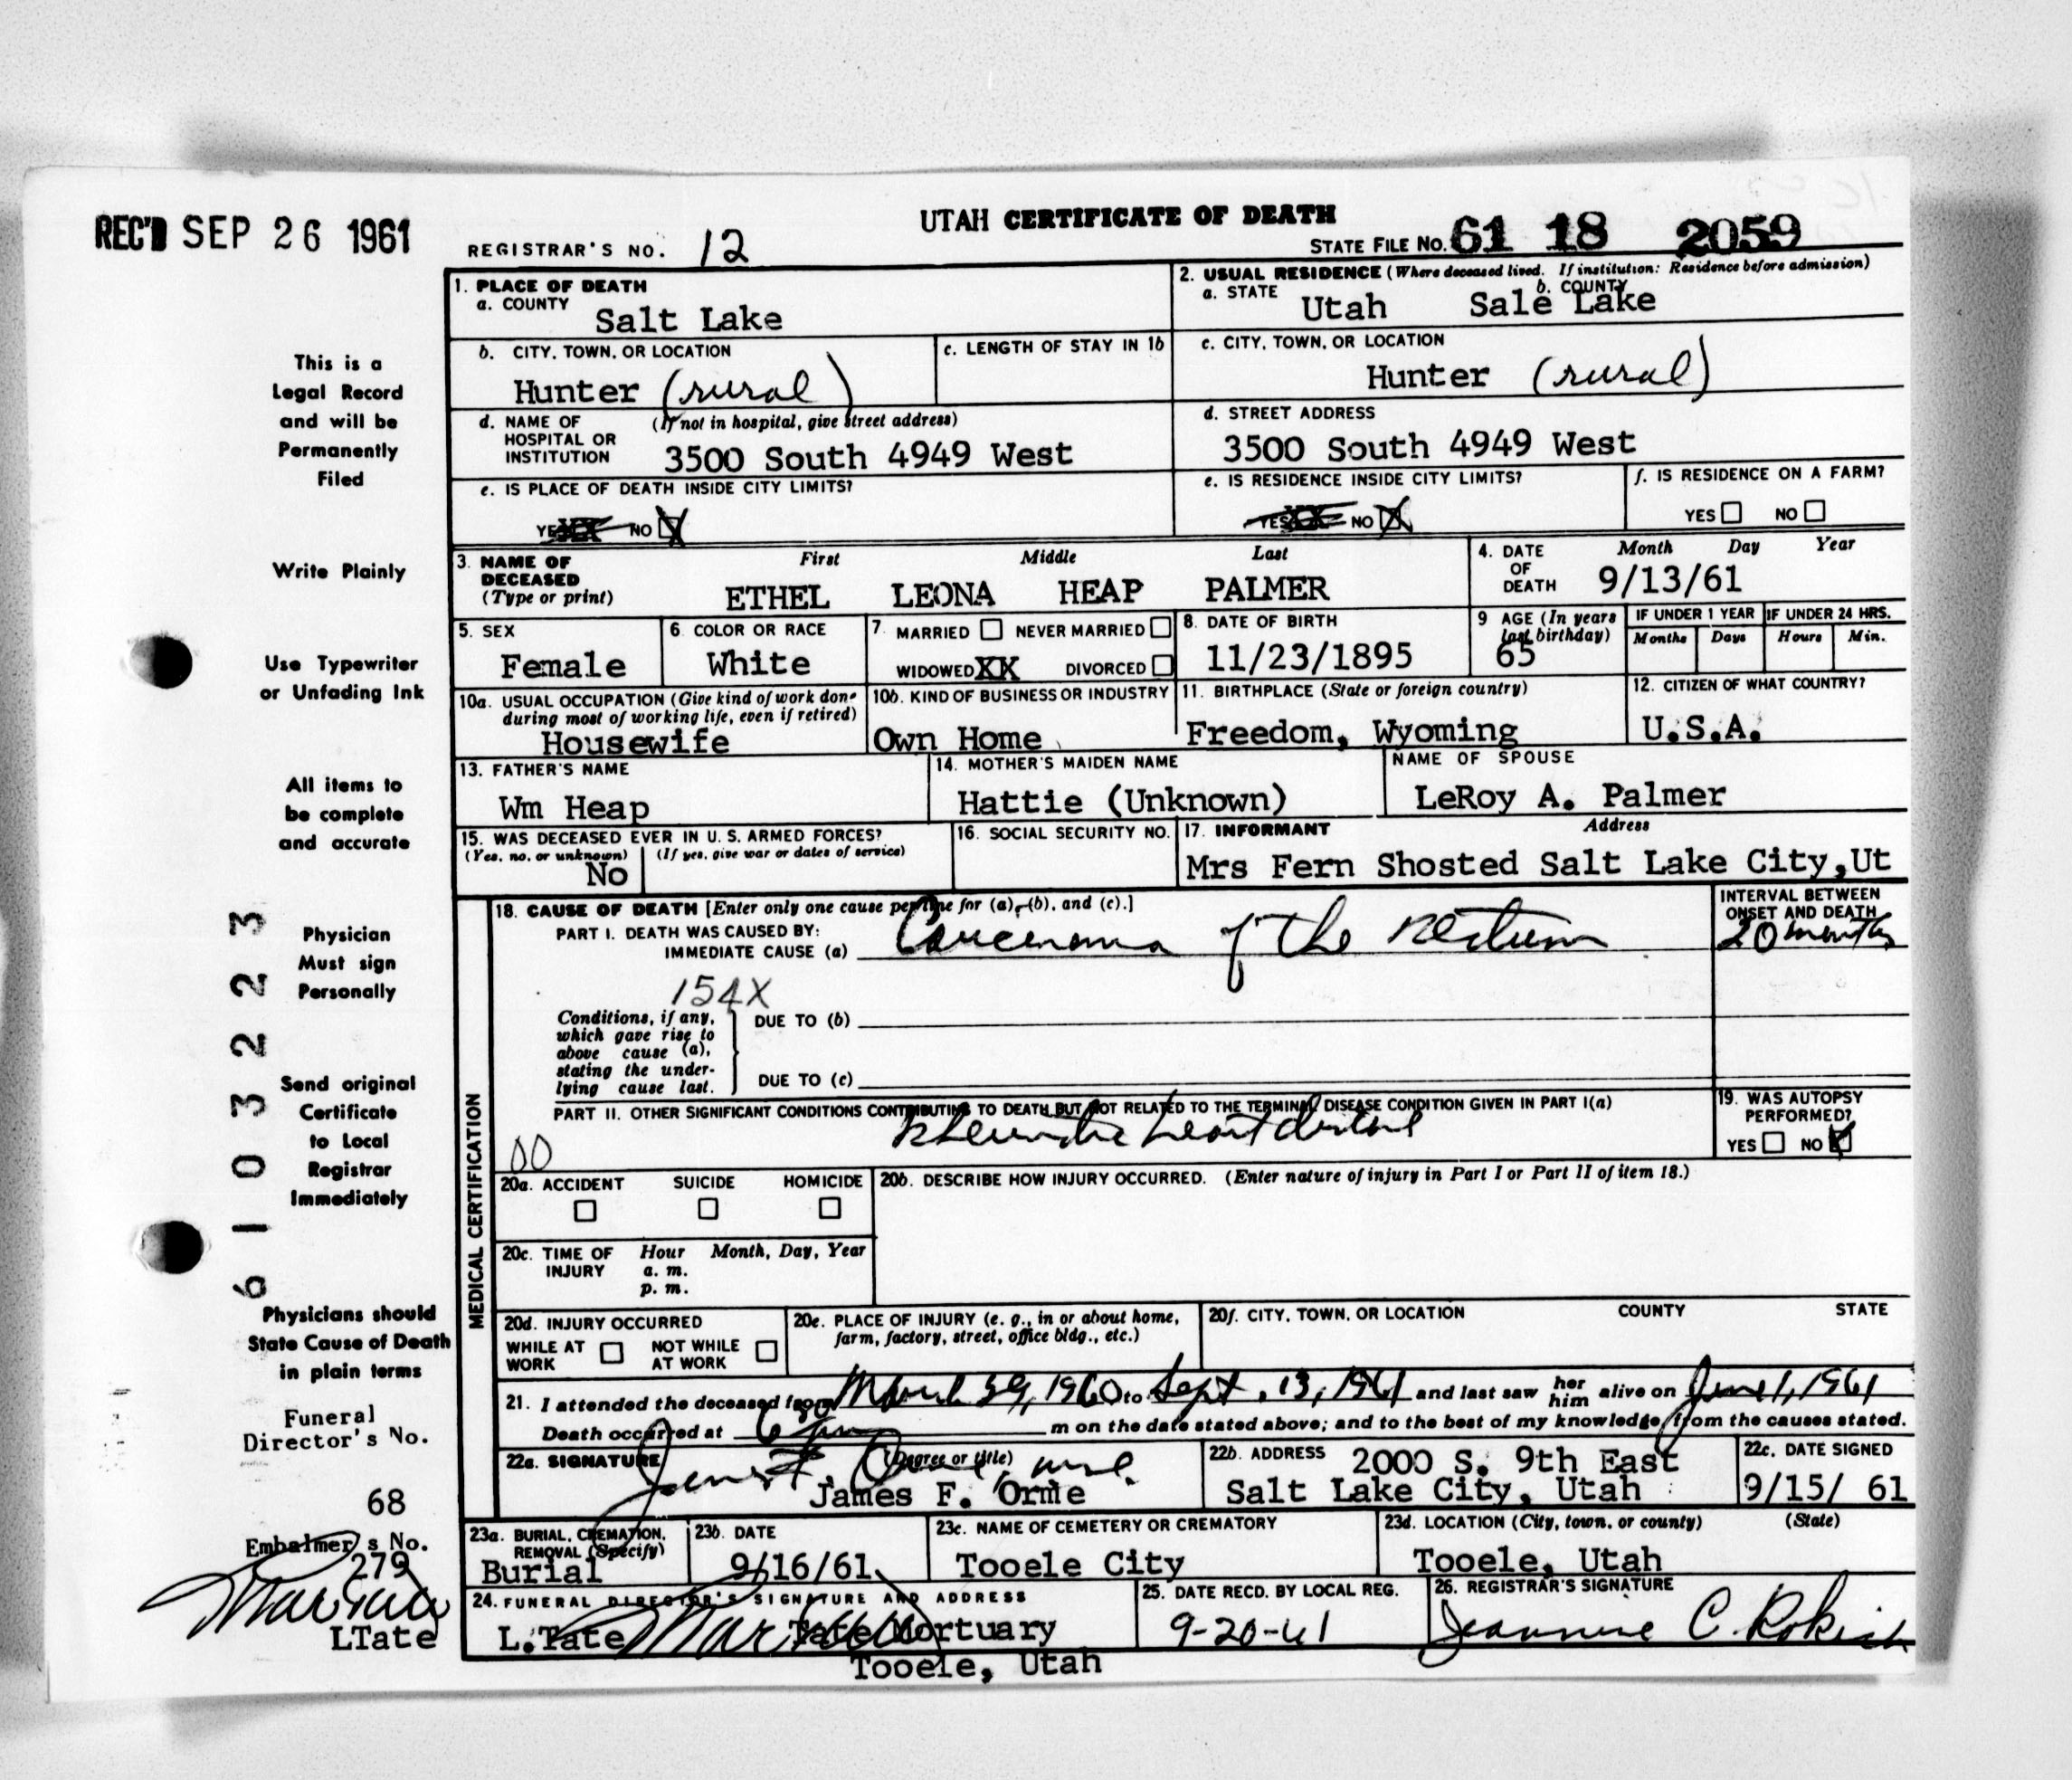 REC'D SEP 26 1961
UTAH CERTIFICATE OF DEATH
REGISTRAR'S NO. 12
STATE FILE NO. 61 18 2059
This is a
Legal Record
and will be
Permanently
Filed
Write Plainly
Use Typewriter
or Unfading Ink
All items to
be complete
and accurate
Physician
Must sign
Personally
Send original
Certificate
to Local
Registrar
Immediately
Physicians should
State Cause of Death
in plain terms
Funeral
Director's No.
68
Embalmer's No.
279
LTate
61032223
1. PLACE OF DEATH
a. COUNTY
Salt Lake
2. USUAL RESIDENCE (Where deceased lived. If institution: Residence before admission)
a. STATE Utah b. COUNTY Sale Lake
b. CITY, TOWN, OR LOCATION
Hunter (rural)
c. LENGTH OF STAY IN 1b
c. CITY, TOWN, OR LOCATION
Hunter (rural)
d. NAME OF HOSPITAL OR INSTITUTION (If not in hospital, give street address)
3500 South 4949 West
d. STREET ADDRESS
3500 South 4949 West
e. IS PLACE OF DEATH INSIDE CITY LIMITS?
YES XX NO X
e. IS RESIDENCE INSIDE CITY LIMITS?
YES XX NO X
f. IS RESIDENCE ON A FARM?
YES NO
3. NAME OF DECEASED (Type or print)
First Middle Last
ETHEL LEONA HEAP PALMER
4. DATE OF DEATH Month Day Year
9/13/61
5. SEX
Female
6. COLOR OR RACE
White
7. MARRIED NEVER MARRIED
WIDOWED XX DIVORCED
8. DATE OF BIRTH
11/23/1895
9 AGE (In years last birthday)
65
IF UNDER 1 YEAR IF UNDER 24 HRS.
Months Days Hours Min.
10a. USUAL OCCUPATION (Give kind of work done during most of working life, even if retired)
Housewife
10b. KIND OF BUSINESS OR INDUSTRY
Own Home
11. BIRTHPLACE (State or foreign country)
Freedom, Wyoming
12. CITIZEN OF WHAT COUNTRY?
U.S.A.
13. FATHER'S NAME
Wm Heap
14. MOTHER'S MAIDEN NAME
Hattie (Unknown)
NAME OF SPOUSE
LeRoy A. Palmer
15. WAS DECEASED EVER IN U. S. ARMED FORCES?
(Yes, no, or unknown) (If yes, give war or dates of service)
No
16. SOCIAL SECURITY NO.
17. INFORMANT Address
Mrs Fern Shosted Salt Lake City,Ut
MEDICAL CERTIFICATION
18. CAUSE OF DEATH [Enter only one cause per line for (a), (b), and (c).]
PART I. DEATH WAS CAUSED BY:
IMMEDIATE CAUSE (a) Carcinoma of the rectum
INTERVAL BETWEEN ONSET AND DEATH
20 months
154X
Conditions, if any, which gave rise to above cause (a), stating the underlying cause last.
DUE TO (b)
DUE TO (c)
PART II. OTHER SIGNIFICANT CONDITIONS CONTRIBUTING TO DEATH BUT NOT RELATED TO THE TERMINAL DISEASE CONDITION GIVEN IN PART I(a)
rheumatic heart disease
00
19. WAS AUTOPSY PERFORMED?
YES NO X
20a. ACCIDENT SUICIDE HOMICIDE
20b. DESCRIBE HOW INJURY OCCURRED. (Enter nature of injury in Part I or Part II of item 18.)
20c. TIME OF INJURY Hour Month, Day, Year
a. m.
p. m.
20d. INJURY OCCURRED
WHILE AT WORK NOT WHILE AT WORK
20e. PLACE OF INJURY (e. g., in or about home, farm, factory, street, office bldg., etc.)
20f. CITY, TOWN, OR LOCATION COUNTY STATE
21. I attended the deceased from March 29, 1960 to Sept. 13, 1961 and last saw her him alive on June 1, 1961
Death occurred at 6 30 pm m on the date stated above; and to the best of my knowledge, from the causes stated.
22a. SIGNATURE (Degree or title)
James F. Orme
James F. Orme
22b. ADDRESS 2000 S. 9th East
Salt Lake City, Utah
22c. DATE SIGNED
9/15/ 61
23a. BURIAL, CREMATION, REMOVAL (Specify)
Burial
23b. DATE
9/16/61
23c. NAME OF CEMETERY OR CREMATORY
Tooele City
23d. LOCATION (City, town, or county) (State)
Tooele, Utah
24. FUNERAL DIRECTOR'S SIGNATURE AND ADDRESS
L.Tate Tate Mortuary
Tooele, Utah
25. DATE RECD. BY LOCAL REG.
9-20-61
26. REGISTRAR'S SIGNATURE
Jeannine C.